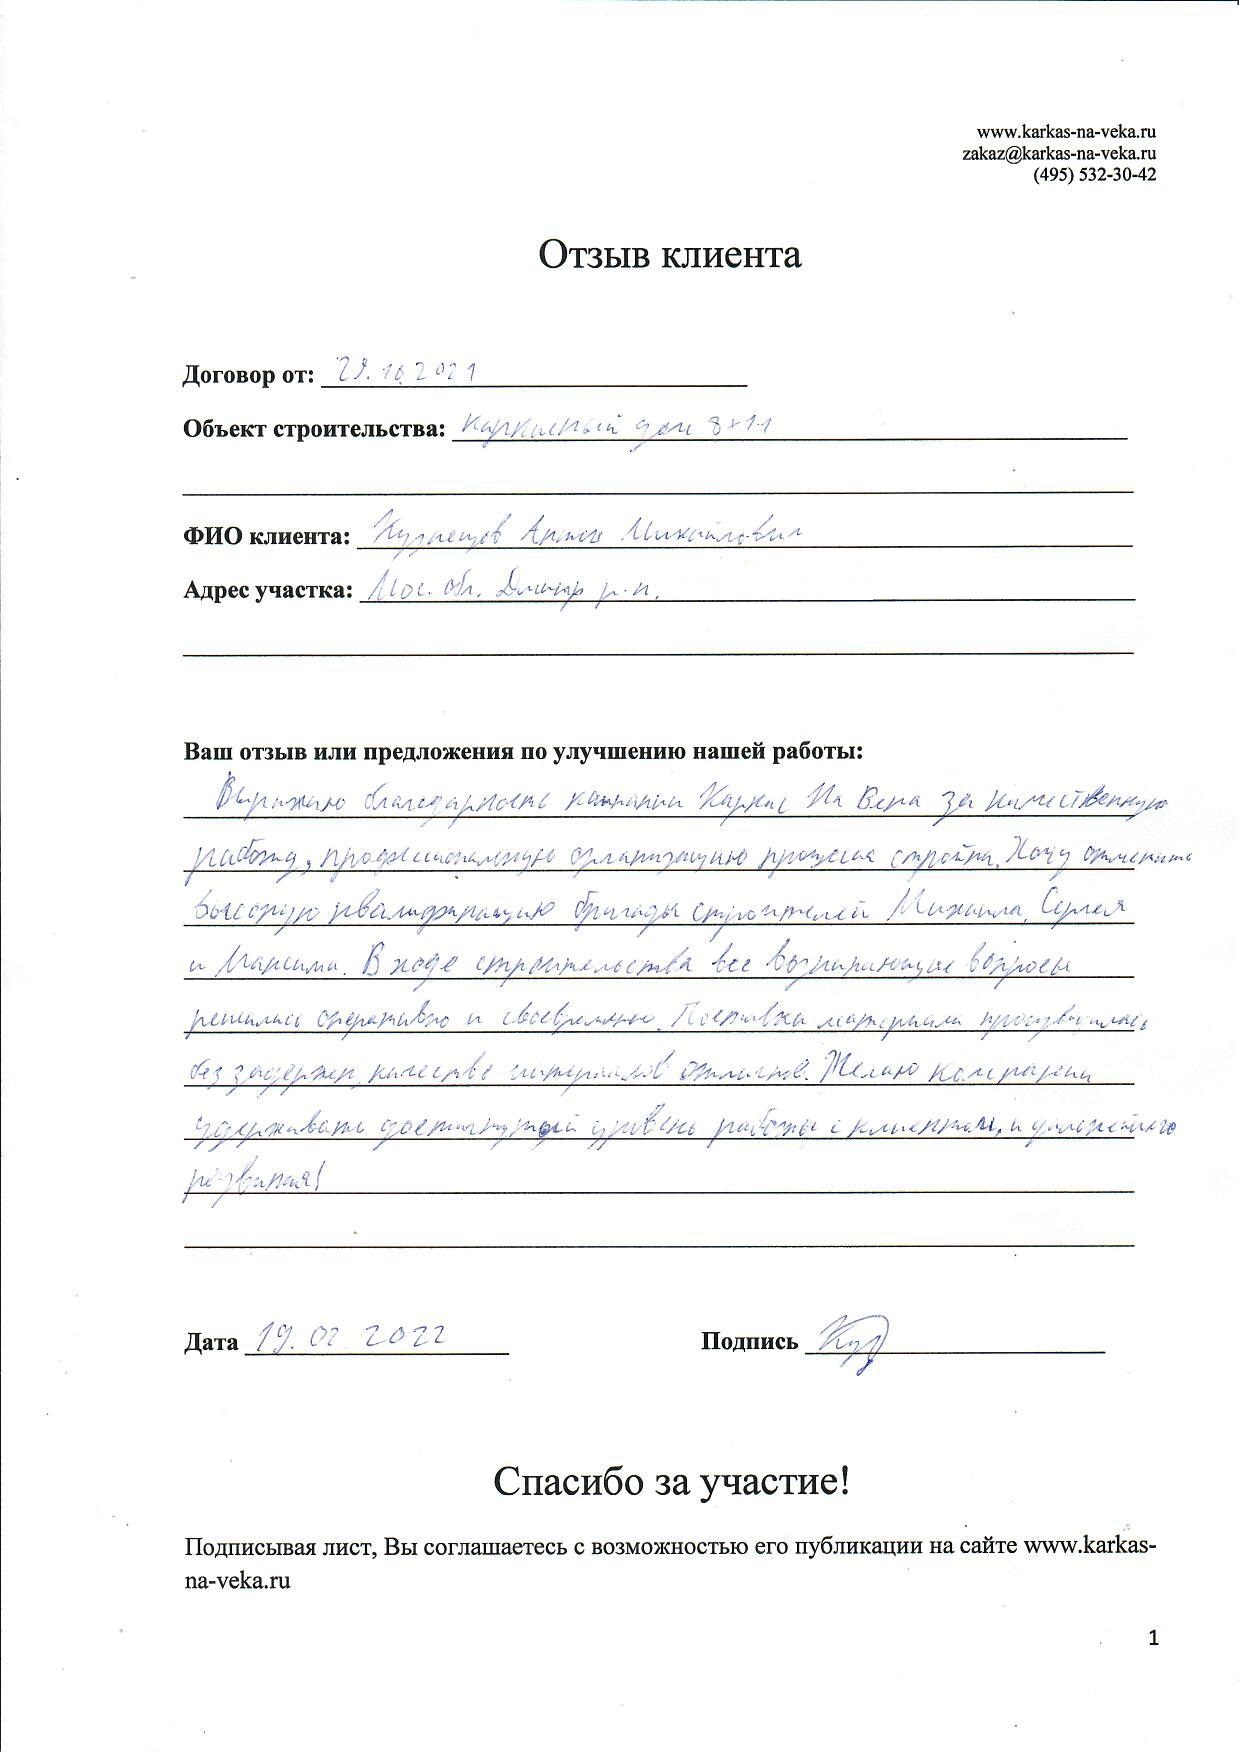 www.karkas-na-veka.ru
zakaz@karkas-na-veka.ru
(495) 532-30-42
Отзыв клиента
Договор от: 29.10.2021
Объект строительства: каркасный дом 8×11
ФИО клиента: Кузнецов Михайлович
Адрес участка: Мос. обл. Дмитр р-н.
Ваш отзыв или предложения по улучшению нашей работы:
Выражаю благодарность компании Каркас На Века за качественную
работу, профессиональную организацию процесса стройки. Хочу отметить
высокую квалификацию бригады строителей Михаила, Сергея
и Максима. В ходе строительства все возникающие вопросы
решались оперативно и своевременно. Поставка материала производилась
без задержек, качество материалов отличное. Желаю компании
удерживать достигнутый уровень работы с клиентами, и дальнейшего
развития!
Дата 19.02.2022 Подпись
Спасибо за участие!
Подписывая лист, Вы соглашаетесь с возможностью его публикации на сайте www.karkas-
na-veka.ru
1